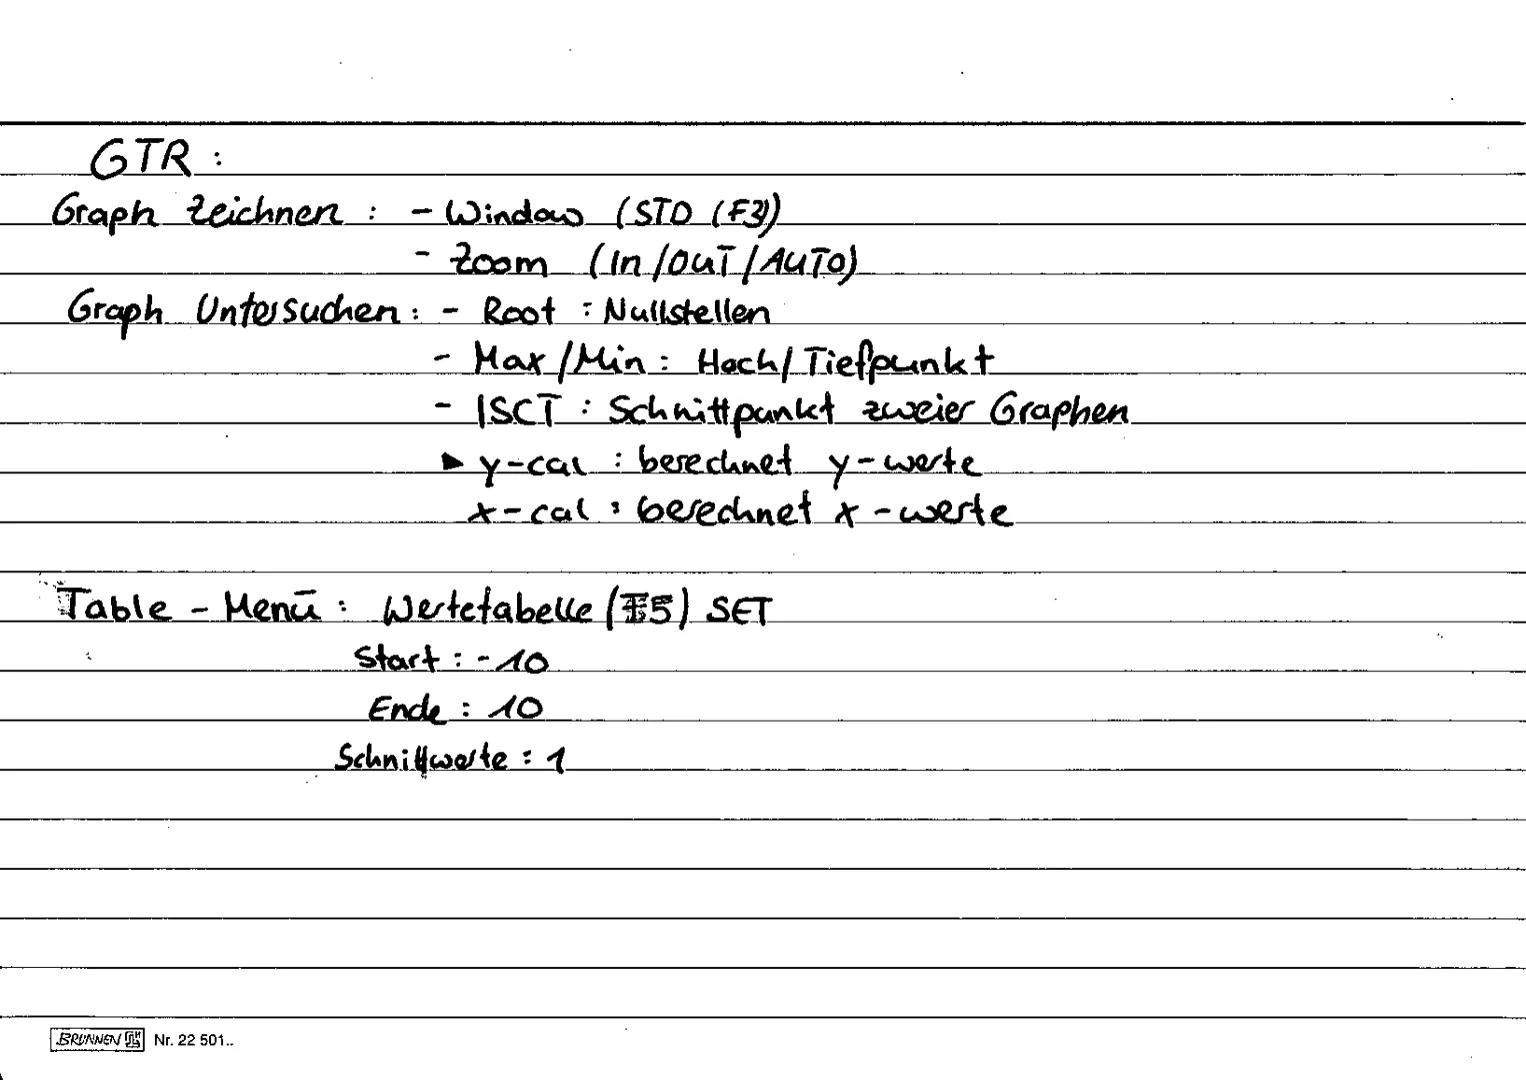 GTR :
Graph zeichnen : - Window (STD (F3))
- Zoom (In/OUT/AUTO)
Graph Untersuchen : - Root : Nullstellen
- Max/Min : Hoch/Tiefpunkt
- ISCT : Schnittpunkt zweier Graphen
▶ y-cal : berechnet y-werte
x-cal : berechnet x-werte
Table-Menü : Wertetabelle (F5) SET
Start : -10
Ende : 10
Schnittwerte : 1
BRUNNEN Nr. 22 501..